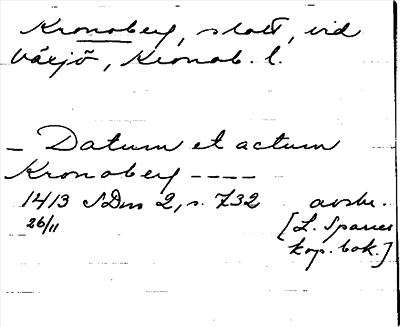 Kronoberg, slott, vid
Växjö, Kronob. l.
– Datum et actum
Kronobergh ----
1413 SDns 2, s. 732 avskr.
26/11 [L. Sparres
kop. bok.]